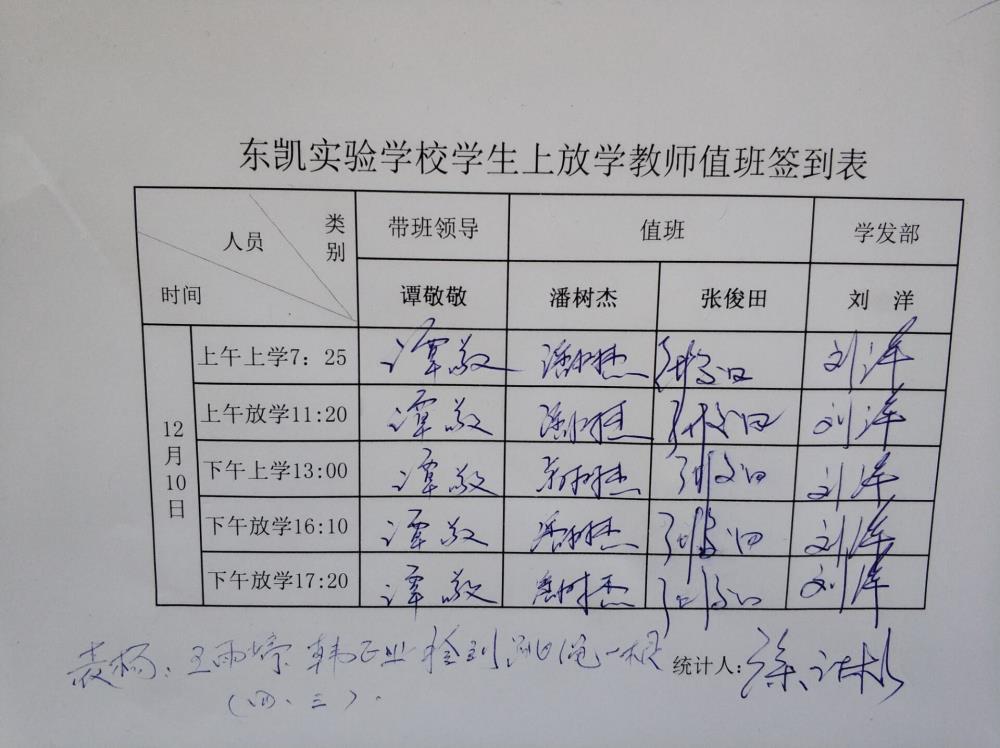 东凯实验学校学生上放学教师值班签到表
类别 人员 时间 带班领导 值班 学发部
谭敬敬 潘树杰 张俊田 刘 洋
12月10日
上午上学7:25 谭敬 潘树杰 张俊田 刘洋
上午放学11:20 谭敬 潘树杰 张俊田 刘洋
下午上学13:00 谭敬 潘树杰 张俊田 刘洋
下午放学16:10 谭敬 潘树杰 张俊田 刘洋
下午放学17:20 谭敬 潘树杰 张俊田 刘洋
表扬:王雨婷 韩正业 捡到跳绳一根 统计人:徐
(四、三).